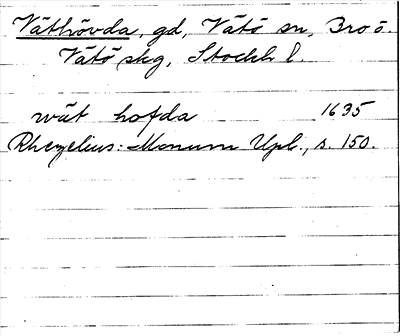 Väthövda, gd, Vätö sn, Bro ö.
Vätö skg, Stockh. l.
wät hofda 1635
Rhezelius: Monum Upl., s. 150.